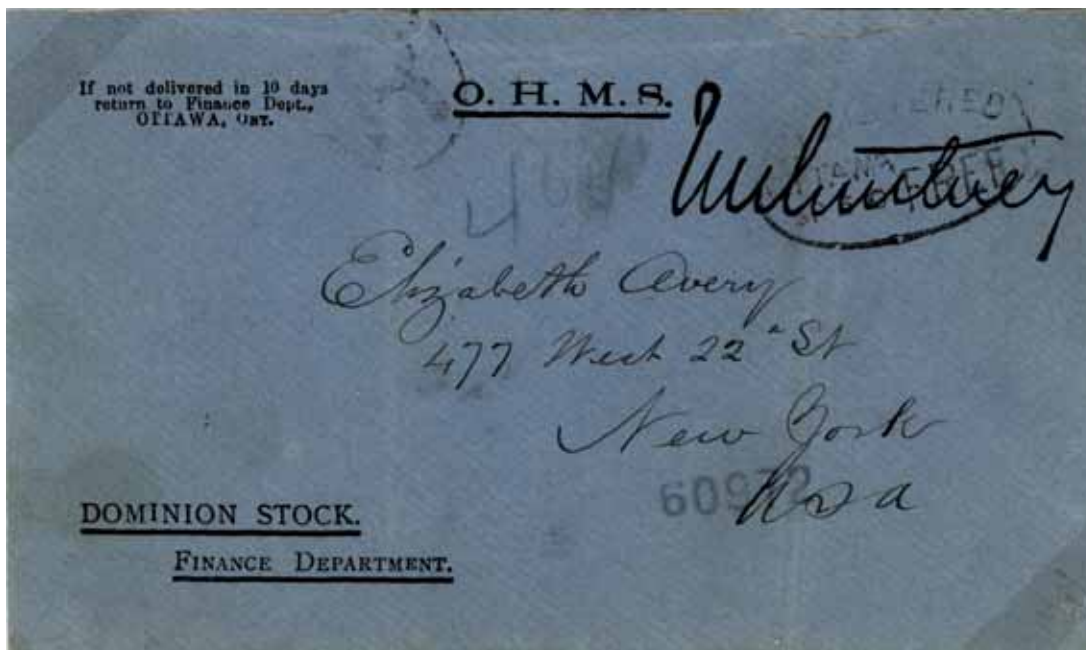 If not delivered in 10 days
return to Finance Dept.,
OTTAWA, ONT.
O. H. M. S.
Elizabeth Avery
477 West 22" St
New York
USA
DOMINION STOCK.
FINANCE DEPARTMENT.